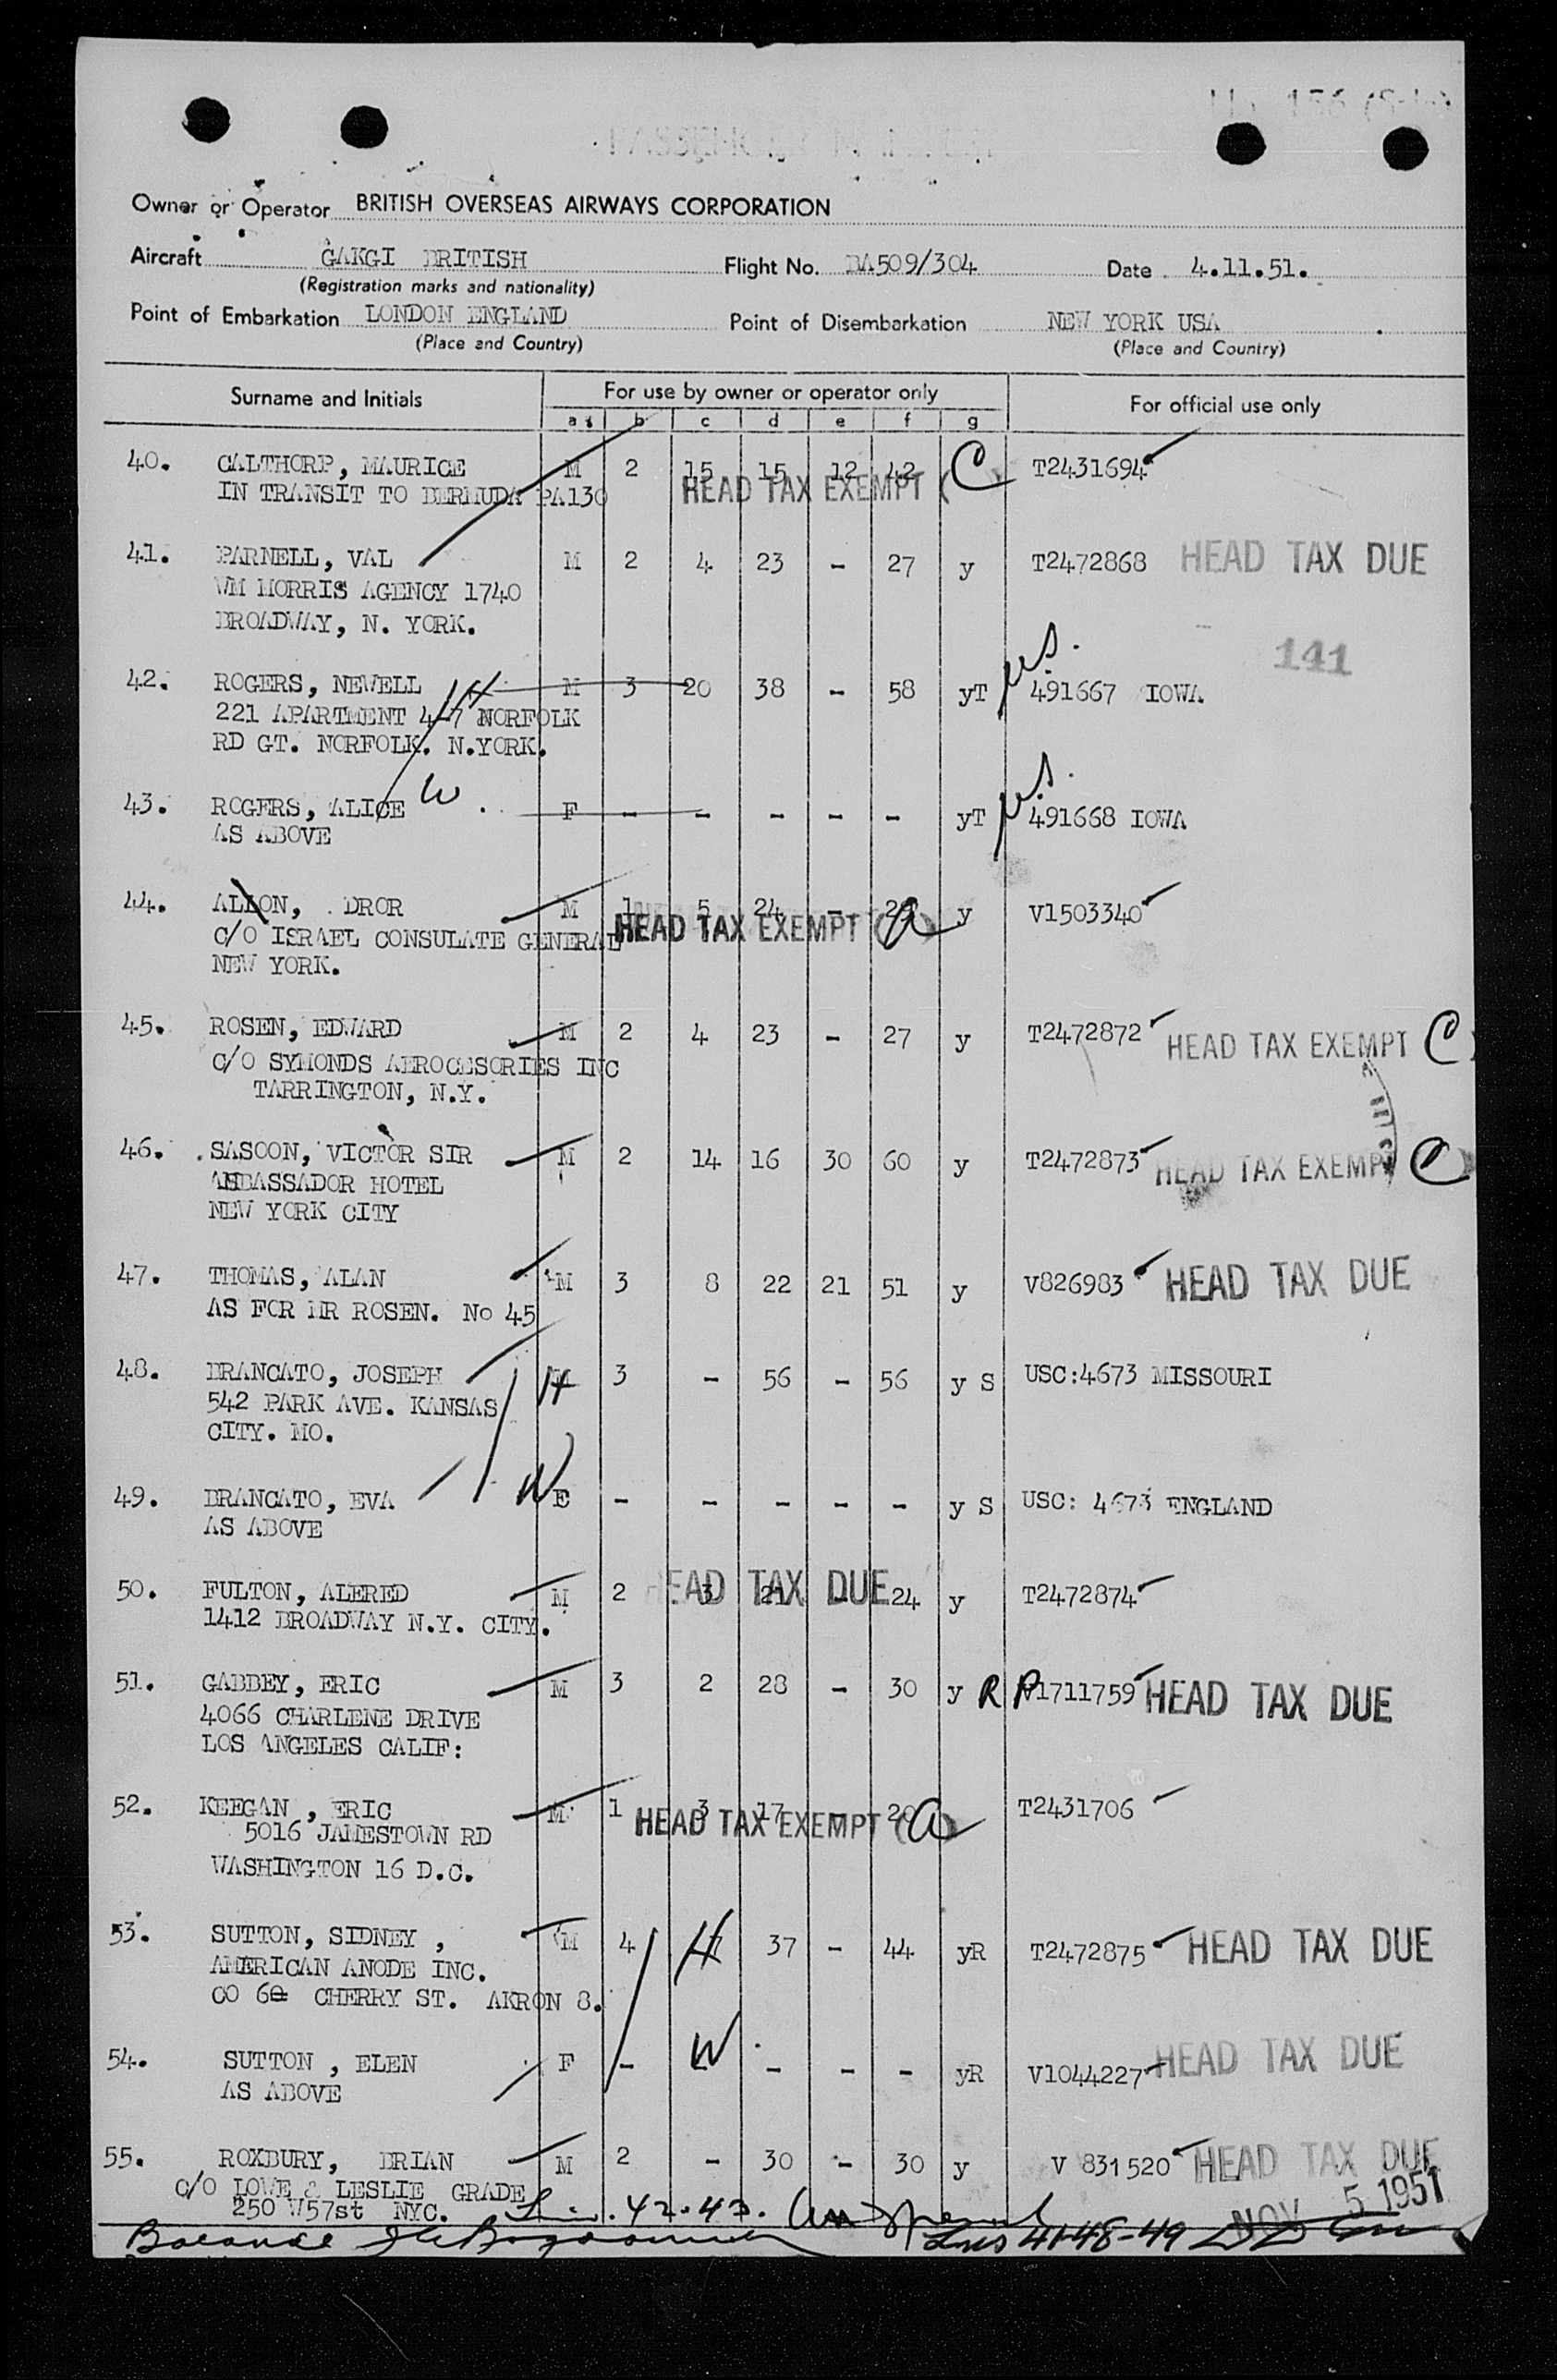 PASSENGER MANIFEST
Owner or Operator BRITISH OVERSEAS AIRWAYS CORPORATION
Aircraft GAKGI BRITISH Flight No. BA509/304 Date 4.11.51.
(Registration marks and nationality)
Point of Embarkation LONDON ENGLAND Point of Disembarkation NEW YORK USA
(Place and Country) (Place and Country)
Surname and Initials For use by owner or operator only For official use only
a b c d e f g
40. CALTHORP, MAURICE M 2 15 15 12 42 C T2431694
IN TRANSIT TO BERMUDA PA130 HEAD TAX EXEMPT (
41. PARNELL, VAL M 2 4 23 - 27 y T2472868 HEAD TAX DUE
WM MORRIS AGENCY 1740
BROADWAY, N. YORK.
141
U.S.
42. ROGERS, NEWELL H M 3 20 38 - 58 yT 491667 IOWA
221 APARTMENT 4-7 NORFOLK
RD GT. NORFOLK. N.YORK.
U.S.
43. ROGERS, ALICE W F - - - - - yT 491668 IOWA
AS ABOVE
44. ALLON, DROR M 1 5 24 - 29 y V1503340
C/O ISRAEL CONSULATE GENERAL HEAD TAX EXEMPT (a)
NEW YORK.
45. ROSEN, EDWARD M 2 4 23 - 27 y T2472872 HEAD TAX EXEMPT C)
C/O SYMONDS AEROCESORIES INC
TARRINGTON, N.Y.
46. SASOON, VICTOR SIR M 2 14 16 30 60 y T2472873 HEAD TAX EXEMPT (C)
AMBASSADOR HOTEL
NEW YORK CITY
47. THOMAS, ALAN M 3 8 22 21 51 y V826983 HEAD TAX DUE
AS FOR MR ROSEN. No 45
48. BRANCATO, JOSEPH H 3 - 56 - 56 y S USC:4673 MISSOURI
542 PARK AVE. KANSAS
CITY. MO.
49. BRANCATO, EVA W - - - - - y S USC: 4673 ENGLAND
AS ABOVE
50. FULTON, ALERED M 2 3 21 - 24 y T2472874
HEAD TAX DUE
1412 BROADWAY N.Y. CITY.
51. GABBEY, ERIC M 3 2 28 - 30 y R P V1711759 HEAD TAX DUE
4066 CHARLENE DRIVE
LOS ANGELES CALIF:
52. KEEGAN , ERIC M 1 3 17 - 20 T2431706
5016 JAMESTOWN RD HEAD TAX EXEMPT (a)
WASHINGTON 16 D.C.
53. SUTTON, SIDNEY , M 4 H 7 37 - 44 yR T2472875 HEAD TAX DUE
AMERICAN ANODE INC.
CO 60 CHERRY ST. AKRON 8.
54. SUTTON , ELEN F - W - - - yR V1044227 HEAD TAX DUE
AS ABOVE
55. ROXBURY, BRIAN M 2 - 30 - 30 y V 831520 HEAD TAX DUE
C/O LOWE & LESLIE GRADE
250 W57st NYC. 42-43. NOV 5 1951
41-48-49